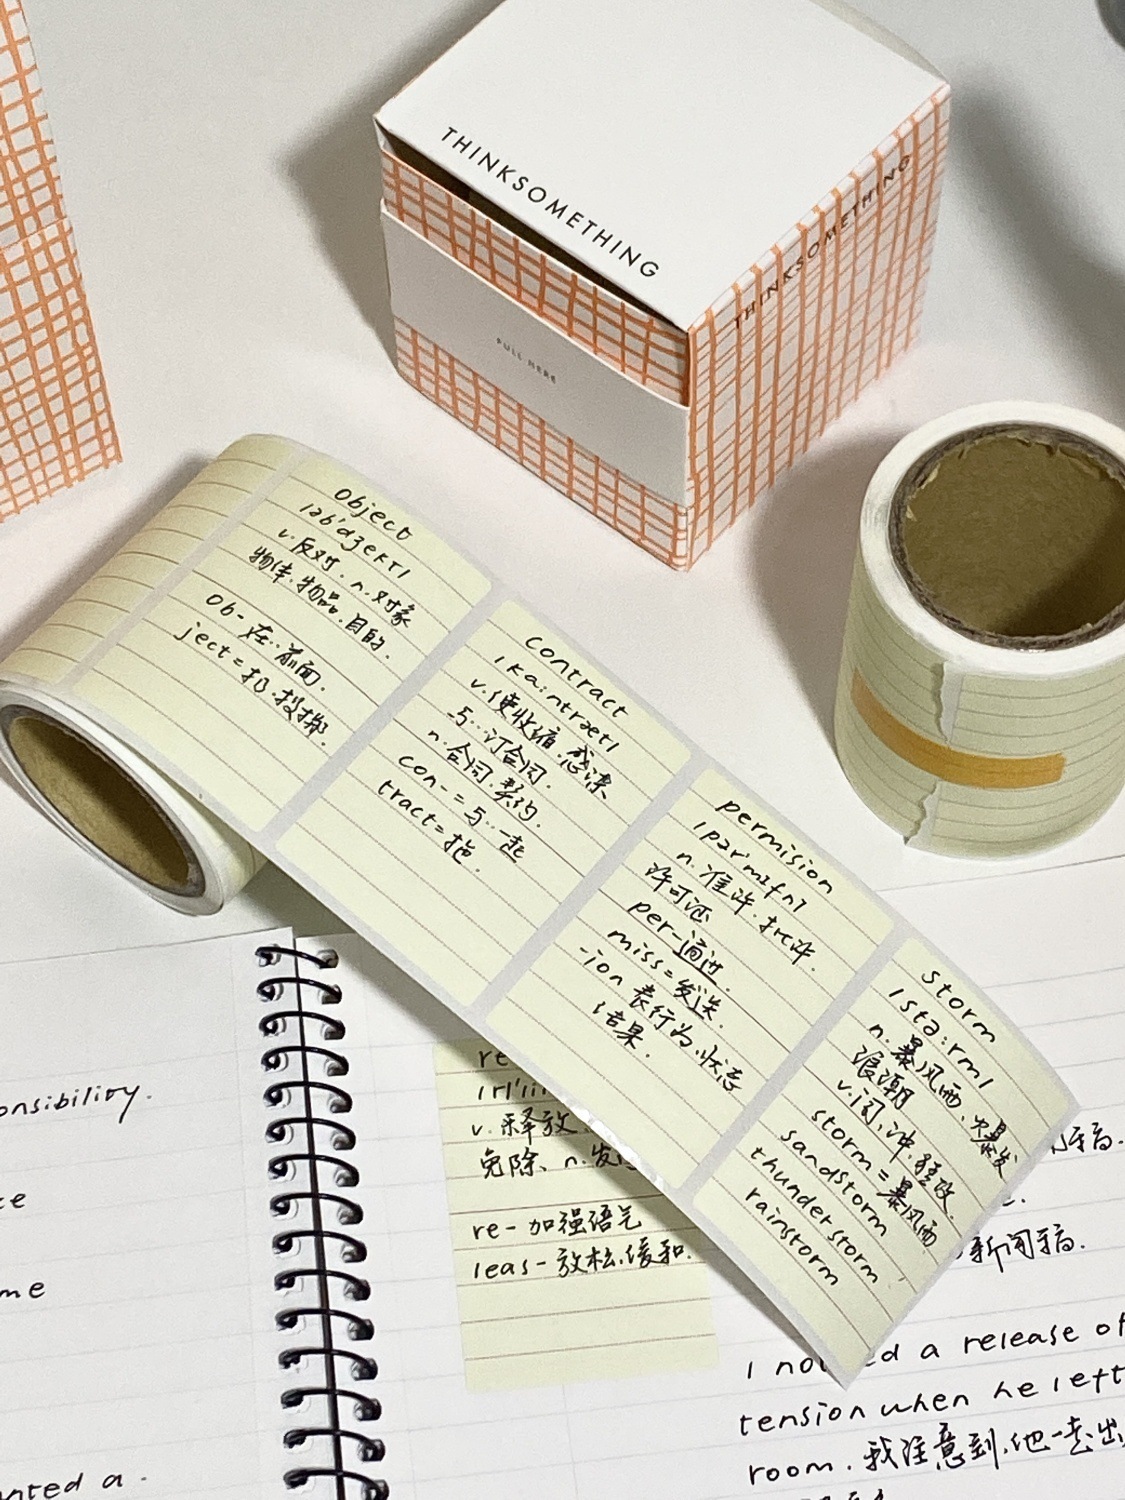 THINKSOMETHING
THINKSOMETHING
PULL HERE
Object
/əb'dʒekt/
v.反对.n.对象
物体.物品.目的.
ob-在..前面.
ject=扔.投掷.
contract
/kɑ:ntrækt/
v.使收缩.感染
-与..订合同.
n.合同.契约.
con-=与..一起
tract=拖.
permision
/pər'mɪʃn/
n.准许.批准.
许可证
per-通过.
miss=发送.
-ion 表行为.状态
结果.
storm
/stɔ:rm/
n.暴风雨.爆发
浪潮
v.闯,冲.猛攻.
storm=暴风雨
sandstorm
thunderstorm
rainstorm
re
v.释放.
免除、n.发
re-加强语气
leas-放松.缓和.
onsibility.
ce
me
nted a.
稿.
新闻稿.
I no ed a release of
tension when he left
room.我注意到.他一走出